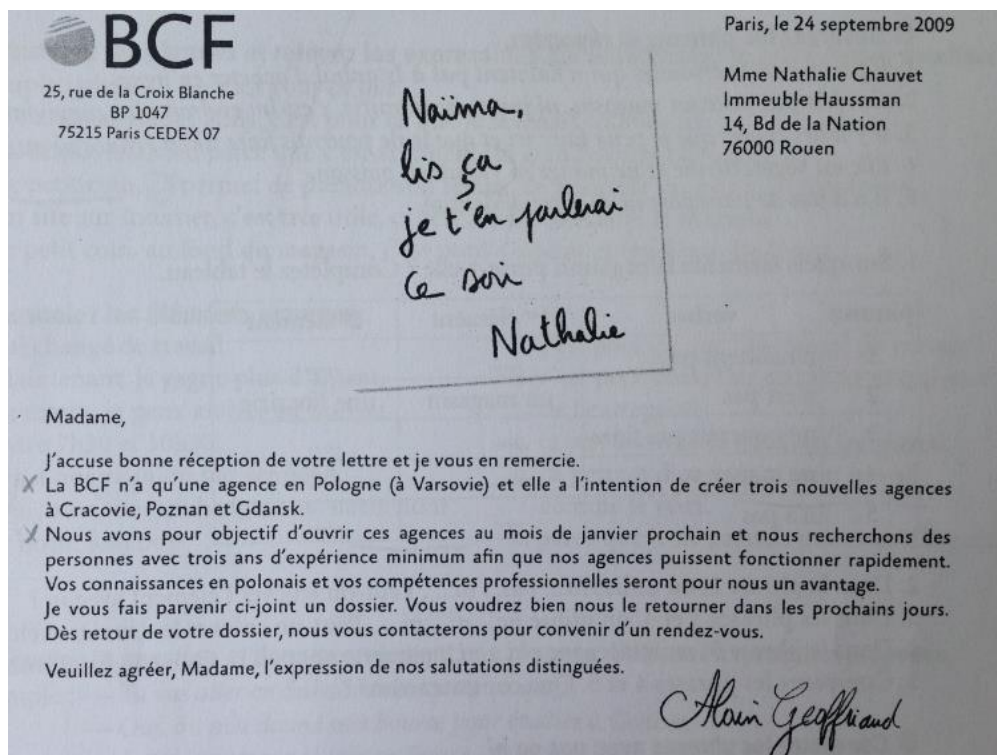 BCF
25, rue de la Croix Blanche
BP 1047
75215 Paris CEDEX 07
Paris, le 24 septembre 2009
Mme Nathalie Chauvet
Immeuble Haussman
14, Bd de la Nation
76000 Rouen
Naïma,
lis ça
je t'en parlerai
ce soir
Nathalie
Madame,
J'accuse bonne réception de votre lettre et je vous en remercie.
La BCF n'a qu'une agence en Pologne (à Varsovie) et elle a l'intention de créer trois nouvelles agences
à Cracovie, Poznan et Gdansk.
Nous avons pour objectif d'ouvrir ces agences au mois de janvier prochain et nous recherchons des
personnes avec trois ans d'expérience minimum afin que nos agences puissent fonctionner rapidement.
Vos connaissances en polonais et vos compétences professionnelles seront pour nous un avantage.
Je vous fais parvenir ci-joint un dossier. Vous voudrez bien nous le retourner dans les prochains jours.
Dès retour de votre dossier, nous vous contacterons pour convenir d'un rendez-vous.
Veuillez agréer, Madame, l'expression de nos salutations distinguées.
Alain Geoffriaud